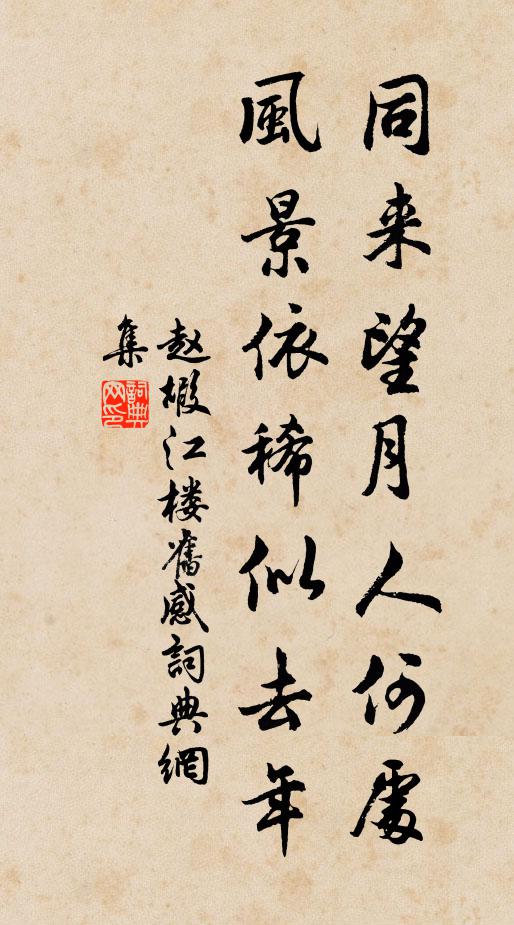 同来望月人何處
風景依稀似去年
赵嘏江楼舊感詞典網
集
詞典網印